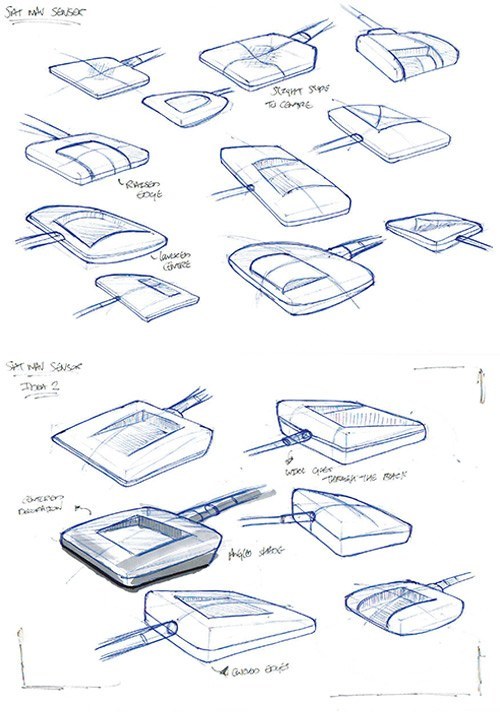 SAT NAV SENSOR
SLIGHT SLOPE
TO CENTRE
RAISED
EDGE
LOWERED
CENTRE
SAT NAV SENSOR
IDEA 2
WIRE GOES
THROUGH THE BACK
LOWERED
DECORATION
ANGLED SHAPE
CURVED EDGES